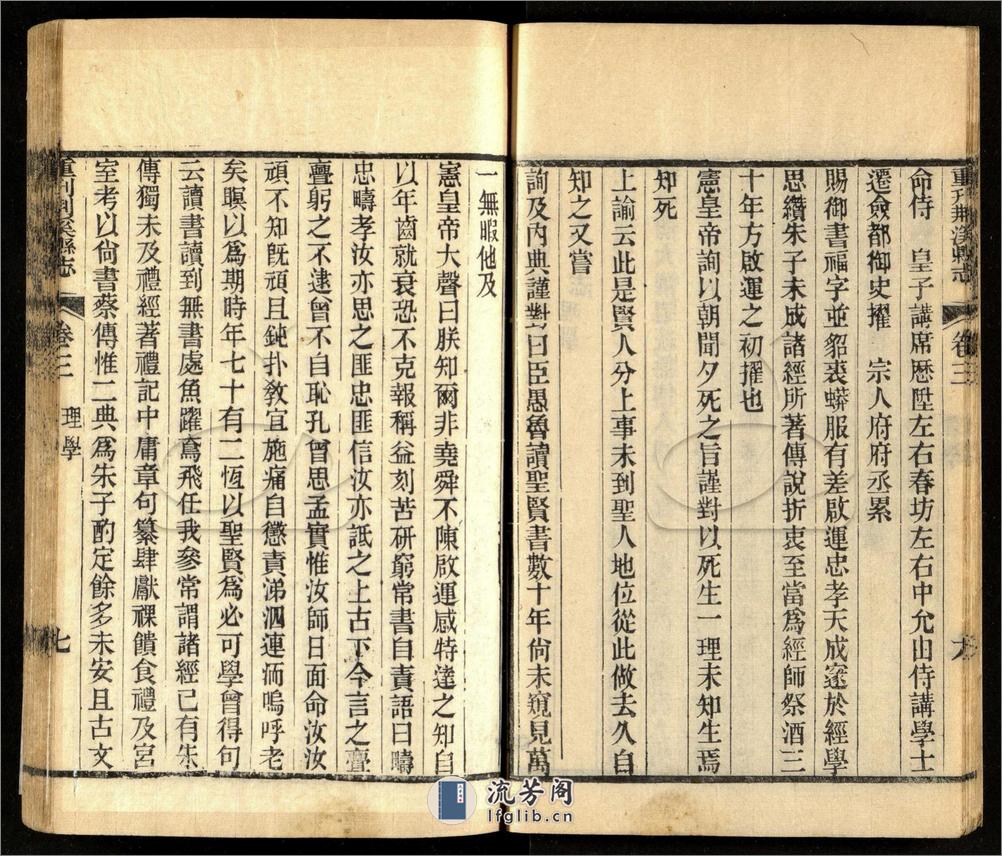 重刊荆溪縣志 卷三
命侍 皇子講席歷陞左右春坊左右中允由侍講學士
遷僉都御史擢 宗人府府丞累
賜御書福字並貂裘蟒服有差啟運忠孝天成邃於經學
思纘朱子未成諸經所著傳說折衷至當爲經師祭酒三
十年方啟運之初擢也
憲皇帝詢以朝聞夕死之旨謹對以死生一理未知生焉
知死
上諭云此是賢人分上事未到聖人地位從此做去久自
知之又嘗
詢及內典謹對曰臣愚魯讀聖賢書數十年尙未窺見萬
一無暇他及
憲皇帝大聲曰朕知爾非堯舜不陳啟運感特達之知自
以年齒就衰恐不克報稱益刻苦研窮常書自責語曰疇
忠疇孝汝亦思之匪忠匪信汝亦詆之上古下今言之亹
亹躬之不逮曾不自恥孔曾思孟實惟汝師日面命汝汝
頑不知旣頑且鈍扑敎宜施痛自懲責涕泗連洏嗚呼老
矣瞑以爲期時年七十有二恆以聖賢爲必可學曾得句
云讀書讀到無書處魚躍鳶飛任我參常謂諸經已有朱
傳獨未及禮經著禮記中庸章句纂肆獻祼饋食禮及宮
室考以尙書蔡傳惟二典爲朱子酌定餘多未安且古文
重刊荆溪縣志 卷三 理學 七
流芳阁
lfglib.cn